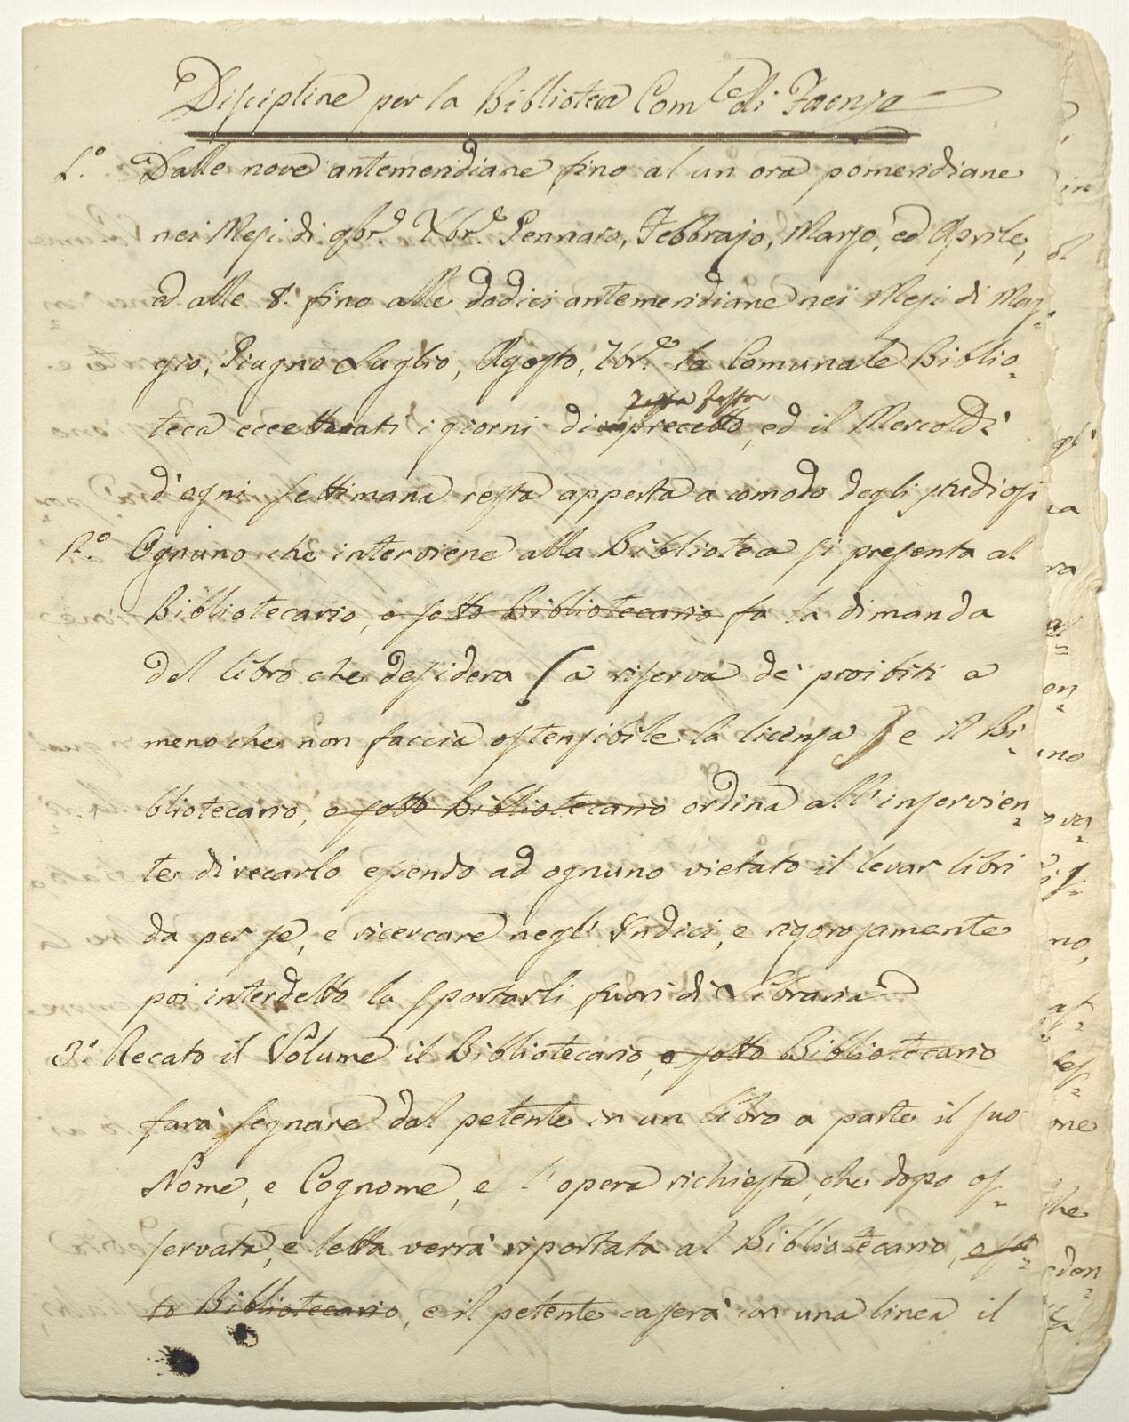 Discipline per la Biblioteca Com.le di Faenza
1.° Dalle nove antemeridiane fino al un ora pomeridiane
nei Mesi di 9br.e Xbr.e Gennaro, Febbrajo, Marzo, ed Aprile,
ed alle 8. fino alle dodici antemeridiane nei Mesi di Mag=
gio, Giugno Luglio, Agosto, 7br.e la Comunale Biblio=
festa
teca eccettuati i giorni di precetto, ed il Mercoldì
d'ogni settimana resta apperta a comodo degli studiosi
2.° Ognuno che interviene alla Biblioteca si presenta al
Bibliotecario, o sotto Bibliotecario fa la dimanda
del libro che desidera (a riserva de' proibiti a
meno che non faccia ostensibile la licenza) e il Bi=
bliotecario, o sotto Bibliotecario ordina all'inservien=
te di recarlo essendo ad ognuno vietato il levar libri
da per se, e ricercare negl'Indici, e rigorosamente
poi interdetto la sportarli fuori di Libraria
3.° Recato il Volume il Bibliotecario, o sotto Bibliotecario
farà segnare dal petente in un libro a parte il suo
Nome, e Cognome, e l'opera richiesta, che dopo os=
servata, e letta verrà riportata al Bibliotecario, o sot=
to Bibliotecario, e il petente casserà con una linea il